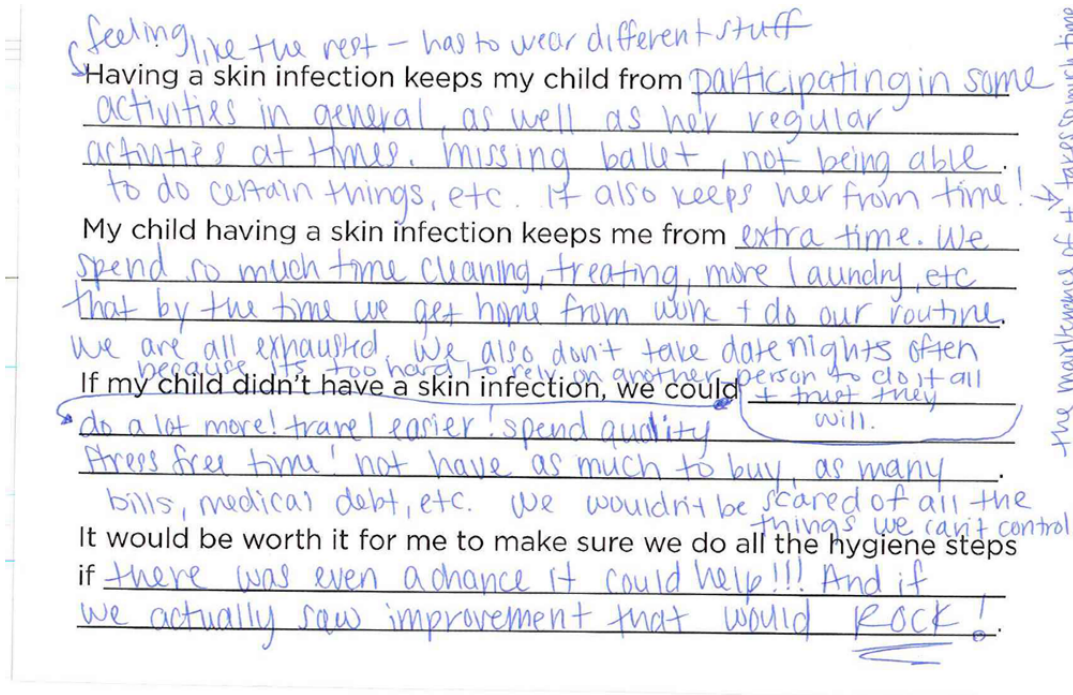 feeling like the rest - has to wear different stuff
Having a skin infection keeps my child from participating in some
activities in general, as well as her regular
activities at times. missing ballet, not being able.
to do certain things, etc. It also keeps her from time! →
the maintenance of it takes so much time
My child having a skin infection keeps me from extra time. We
spend so much time cleaning, treating, more laundry, etc
that by the time we get home from work + do our routine.
we are all exhausted. We also don't take date nights often
because its too hard to rely on another person to do it all
+ trust they
will.
If my child didn't have a skin infection, we could
do a lot more! travel easier! spend quality
stress free time! not have as much to buy, as many.
bills, medical debt, etc. We wouldn't be scared of all the
things we can't control
It would be worth it for me to make sure we do all the hygiene steps
if there was even a chance it could help!!! And if
we actually saw improvement that would ROCK!.